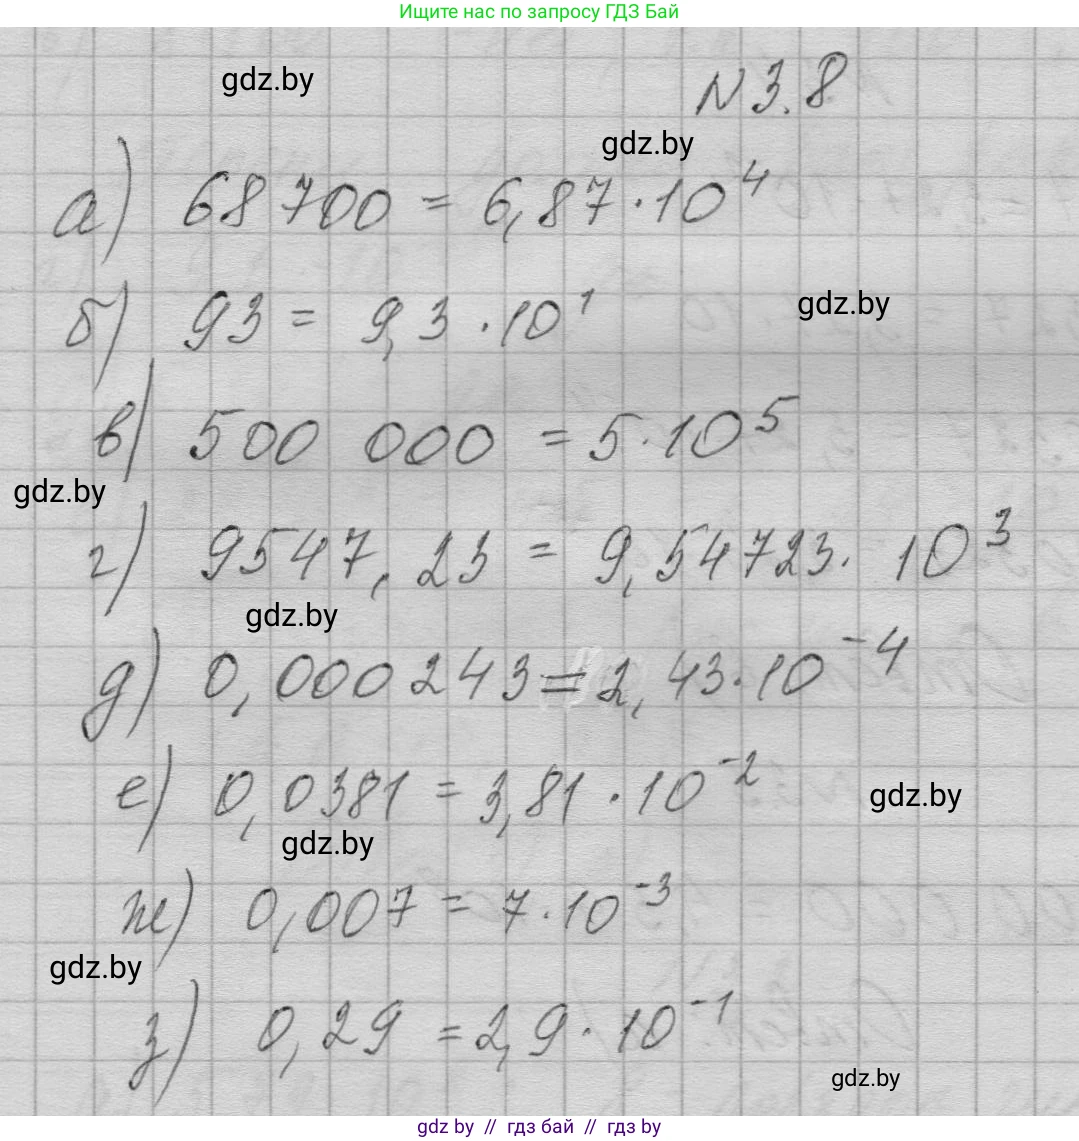 Ищите нас по запросу ГДЗ Бай
gdz.by
N 3.8
gdz.by
а) 68 700 = 6,87 · 10⁴
б) 93 = 9,3 · 10¹
gdz.by
в) 500 000 = 5 · 10⁵
gdz.by
г) 9547,23 = 9,54723 · 10³
gdz.by
д) 0,000243 = 2,43 · 10⁻⁴
е) 0,0381 = 3,81 · 10⁻²
gdz.by
gdz.by
ж) 0,007 = 7 · 10⁻³
gdz.by
з) 0,29 = 2,9 · 10⁻¹
gdz.by
gdz by // гдз бай // гдз by